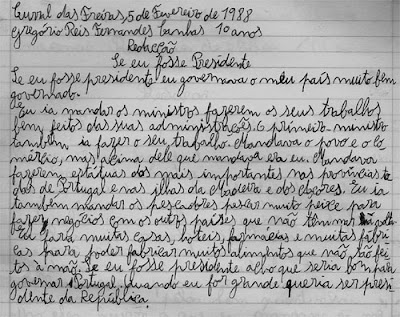 Curral das Freiras, 5 de Fevereiro de 1988
Gregório Reis Fernandes Canhas 10 anos
Redacção
Se eu fosse Presidente
Se eu fosse presidente eu governava o meu país muito bem
governado.
Eu ia mandar os ministros fazerem os seus trabalhos
bem feitos das suas administração. O primeiro-ministro
também ia fazer o seu trabalho. Mandava o povo e o co
mércio, mas acima dele que mandava era eu. Mandava
fazerem estátuas dos mais importantes nas províncias to
das de Portugal e nas ilhas da Madeira e dos Açores. Eu ia
também mandar os pescadores pescar muito peixe para
fazer negócios com os outros países que não têm mar
Eu faria muitas casas, hoteis, farmácias e muitas fábri
cas para poder fabricar muitos alimentos que não são fei
tos à mão. Se eu fosse presidente acho que seria bom para
governar Portugal. Quando eu for grande queria ser presi
dente da República.